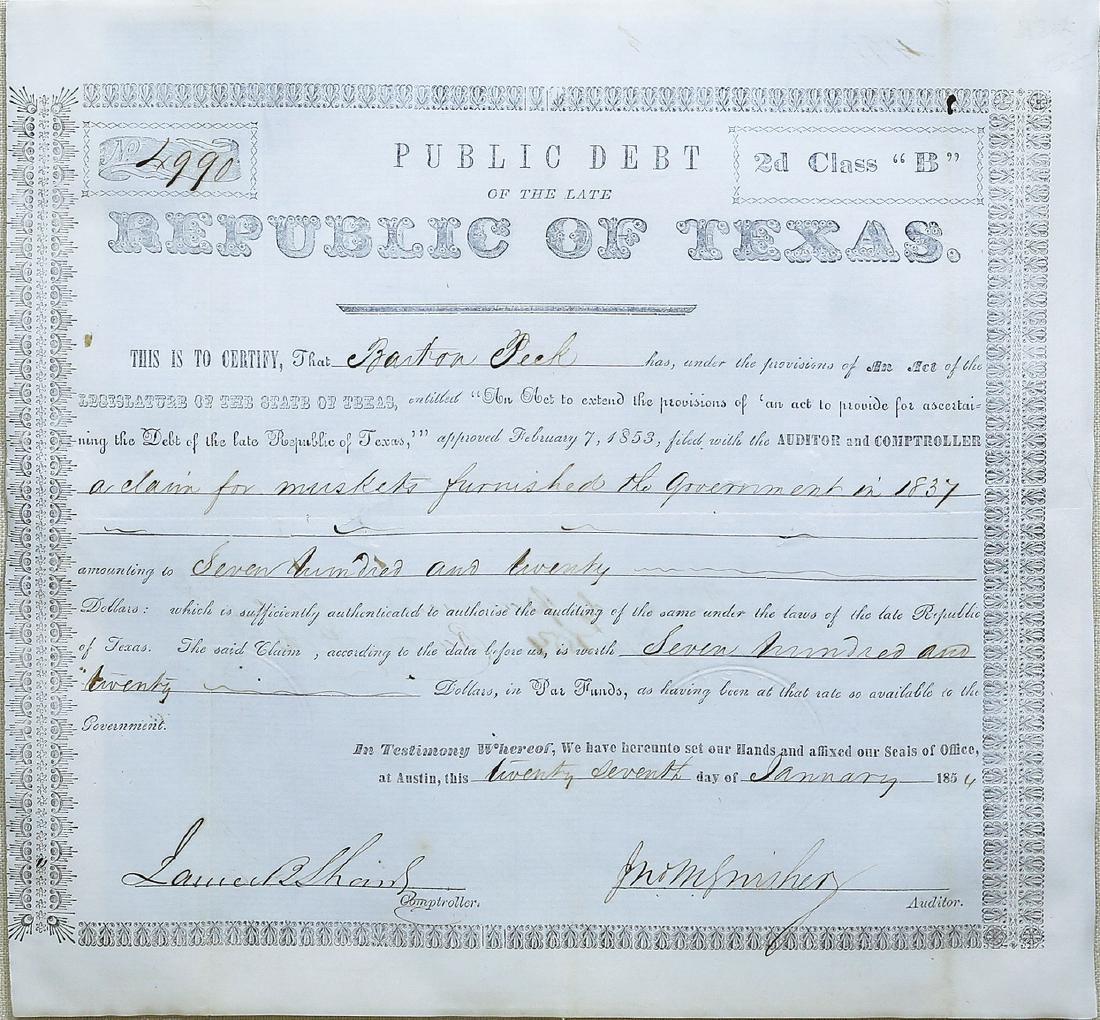 No 4990
PUBLIC DEBT
2d Class "B"
OF THE LATE
REPUBLIC OF TEXAS.
THIS IS TO CERTIFY, That Barton Peck has, under the provisions of An Act of the
LEGISLATURE OF THE STATE OF TEXAS, entitled "An Act to extend the provisions of 'an act to provide for ascertai-
ning the Debt of the late Republic of Texas,'" approved February 7, 1853, filed with the AUDITOR and COMPTROLLER
a claim for muskets furnished the Government in 1837
amounting to Seven hundred and twenty
Dollars: which is sufficiently authenticated to authorise the auditing of the same under the laws of the late Republic
of Texas. The said Claim, according to the data before us, is worth Seven hundred and
twenty Dollars, in Par Funds, as having been at that rate so available to the
Government.
In Testimony Whereof, We have hereunto set our Hands and affixed our Seals of Office,
at Austin, this twenty seventh day of January 1854
James B Shaw
Comptroller.
Auditor.